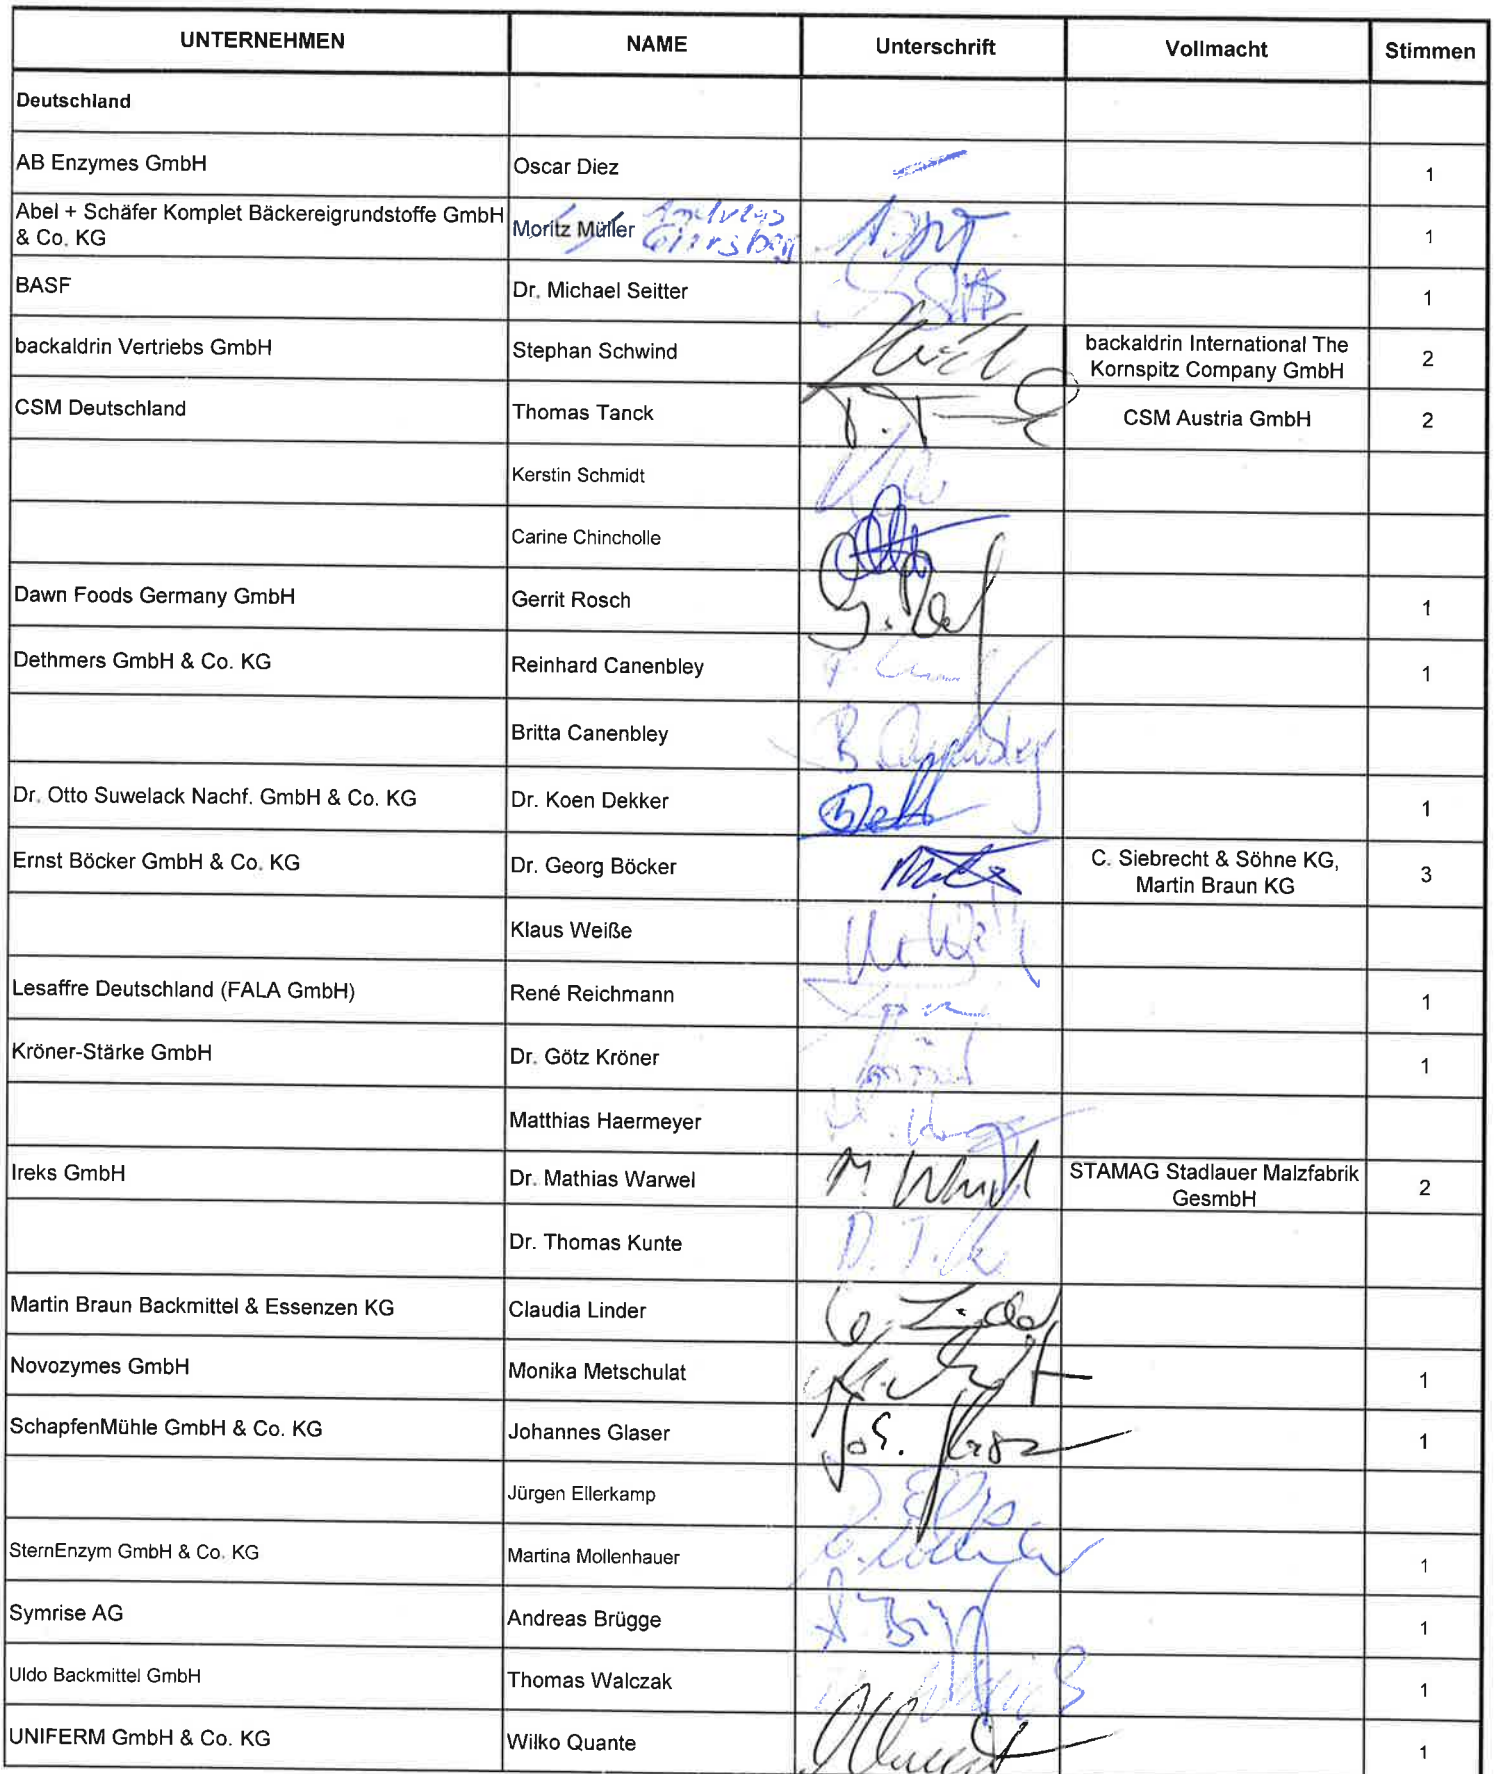 UNTERNEHMEN NAME Unterschrift Vollmacht Stimmen
Deutschland
AB Enzymes GmbH Oscar Diez 1
Abel + Schäfer Komplet Bäckereigrundstoffe GmbH
& Co. KG Moritz Müller Andreas
Giersberg 1
BASF Dr. Michael Seitter 1
backaldrin Vertriebs GmbH Stephan Schwind backaldrin International The
Kornspitz Company GmbH 2
CSM Deutschland Thomas Tanck CSM Austria GmbH 2
Kerstin Schmidt
Carine Chincholle
Dawn Foods Germany GmbH Gerrit Rosch 1
Dethmers GmbH & Co. KG Reinhard Canenbley 1
Britta Canenbley B. Canenbley
Dr. Otto Suwelack Nachf. GmbH & Co. KG Dr. Koen Dekker 1
Ernst Böcker GmbH & Co. KG Dr. Georg Böcker C. Siebrecht & Söhne KG,
Martin Braun KG 3
Klaus Weiße
Lesaffre Deutschland (FALA GmbH) René Reichmann 1
Kröner-Stärke GmbH Dr. Götz Kröner 1
Matthias Haermeyer
Ireks GmbH Dr. Mathias Warwel STAMAG Stadlauer Malzfabrik
GesmbH 2
Dr. Thomas Kunte
Martin Braun Backmittel & Essenzen KG Claudia Linder
Novozymes GmbH Monika Metschulat 1
SchapfenMühle GmbH & Co. KG Johannes Glaser 1
Jürgen Ellerkamp
SternEnzym GmbH & Co. KG Martina Mollenhauer 1
Symrise AG Andreas Brügge 1
Uldo Backmittel GmbH Thomas Walczak 1
UNIFERM GmbH & Co. KG Wilko Quante 1